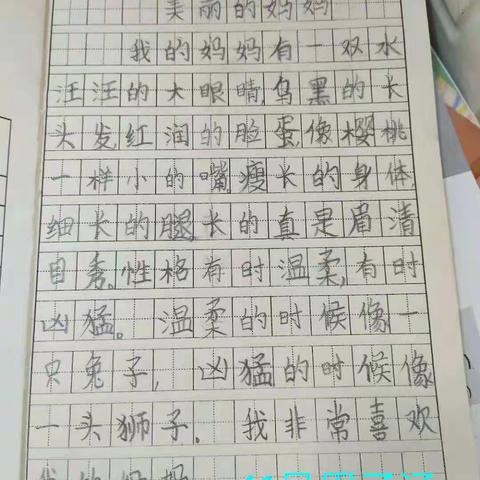 美丽的妈妈
我的妈妈有一双水
汪汪的大眼睛,乌黑的长
头发,红润的脸蛋,像樱桃
一样小的嘴,瘦长的身体,
细长的腿,长的真是眉清
目秀。性格有时温柔,有时
凶猛。温柔的时候像一
只兔子,凶猛的时候像
一头狮子。我非常喜欢
我的妈妈